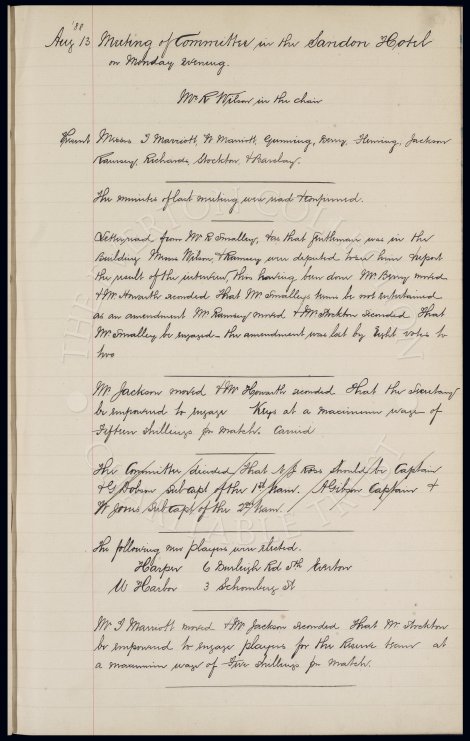 '88
Aug 13 Meeting of Committee in the Sandon Hotel
on Monday evening.
Mr R Wilson in the chair
Present Messrs J Marriott, W Marriott, Gunning, Berry, Fleming, Jackson
Ramsey, Richards, Stockton, & Barclay.
The minutes of last meeting were read & confirmed.
Letter read from Mr R Smalley, & as that gentleman was in the
Building Messrs Wilson, & Ramsey were deputed to see him & report
the result of the interview, this having been done Mr Berry moved
& Mr Howarth seconded that Mr Smalleys terms be not entertained
as an amendment Mr Ramsey moved & Mr Stockton seconded That
Mr Smalley be engaged – the amendment was lost by Eight votes to
two
Mr Jackson moved & Mr Howarth seconded that the Secretary
be empowered to engage Keys at a maximum wage of
Fifteen shillings per match. Carried
The Committee decided That N J Ross should be Captain
& G Dobson Sub Capt of the 1st Team. A Gibson Captain &
W Jones Sub Capt of the 2nd Team.
The following new players were elected.
Harper 6 Burleigh Rd Sth Everton
W Harbor 3 Schomberg St
Mr J Marriott moved & Mr Jackson seconded That Mr Stockton
be empowered to engage players for the Reserve team at
a maximum wage of Five shillings per match.
THE EVERTON COLLECTION
CHARITABLE TRUST